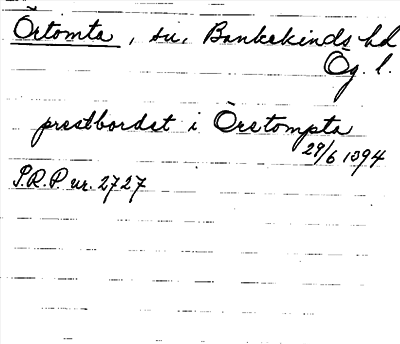 Örtomta, sn, Bankekinds hd
Ög l.
prestbordet i Örstompta
29/6 1394
S.R.P. nr. 2727